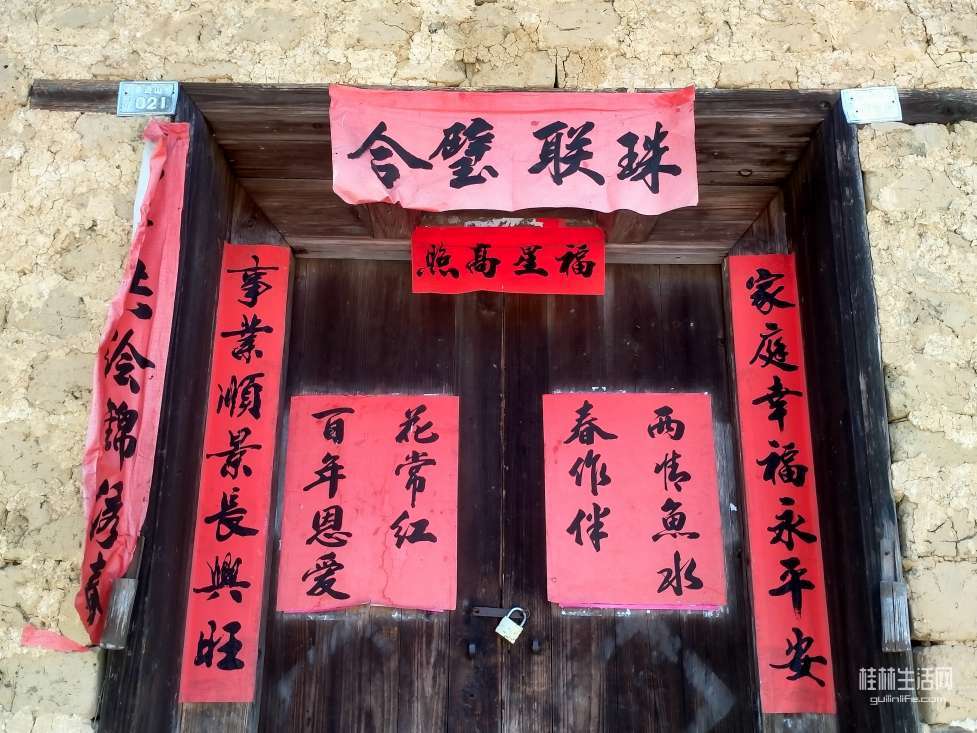 珠联璧合
福星高照
家庭幸福永平安
事業順景長興旺
两情魚水
春作伴
百年恩爱
花常红
绘锦
021
桂林生活网
guilinlife.com